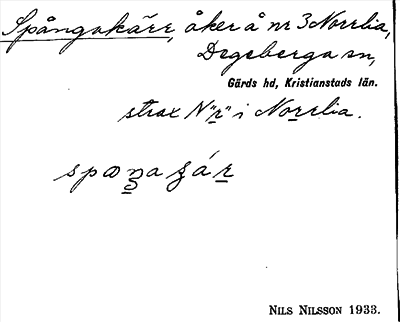 Spångakärr, åker å nr 3 Norrlia,
Degeberga sn,
Gärds hd, Kristianstads län.
strax N "r" i Norrlia.
NILS NILSSON 1933.